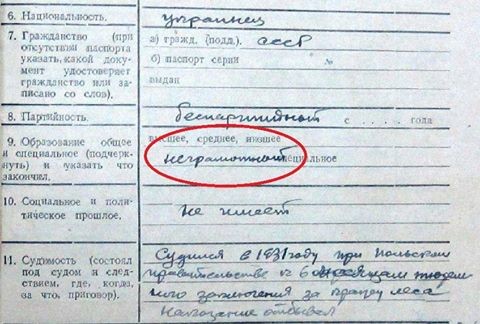 6. Национальность. украинец
7. Гражданство (при а) гражд. (подд.). СССР
отсутствии паспорта б) паспорт серии №
указать, какой доку-
мент удостоверяет выдан
гражданство или за-
писано со слов).
8. Партийность. беспартийный с . . . . года
9. Образование общее высшее, среднее, низшее
и специальное (подчерк- неграмотный специальное
нуть) и указать что
закончил.
10. Социальное и поли- не имеет
тическое прошлое.
11. Судимость (состоял Судился в 1931 году при польском
под судом и след- правительстве к 6 месяцам тюрем-
ствием, где, когда, ного заключения за кражу леса
за что, приговор). Наказание отбывал